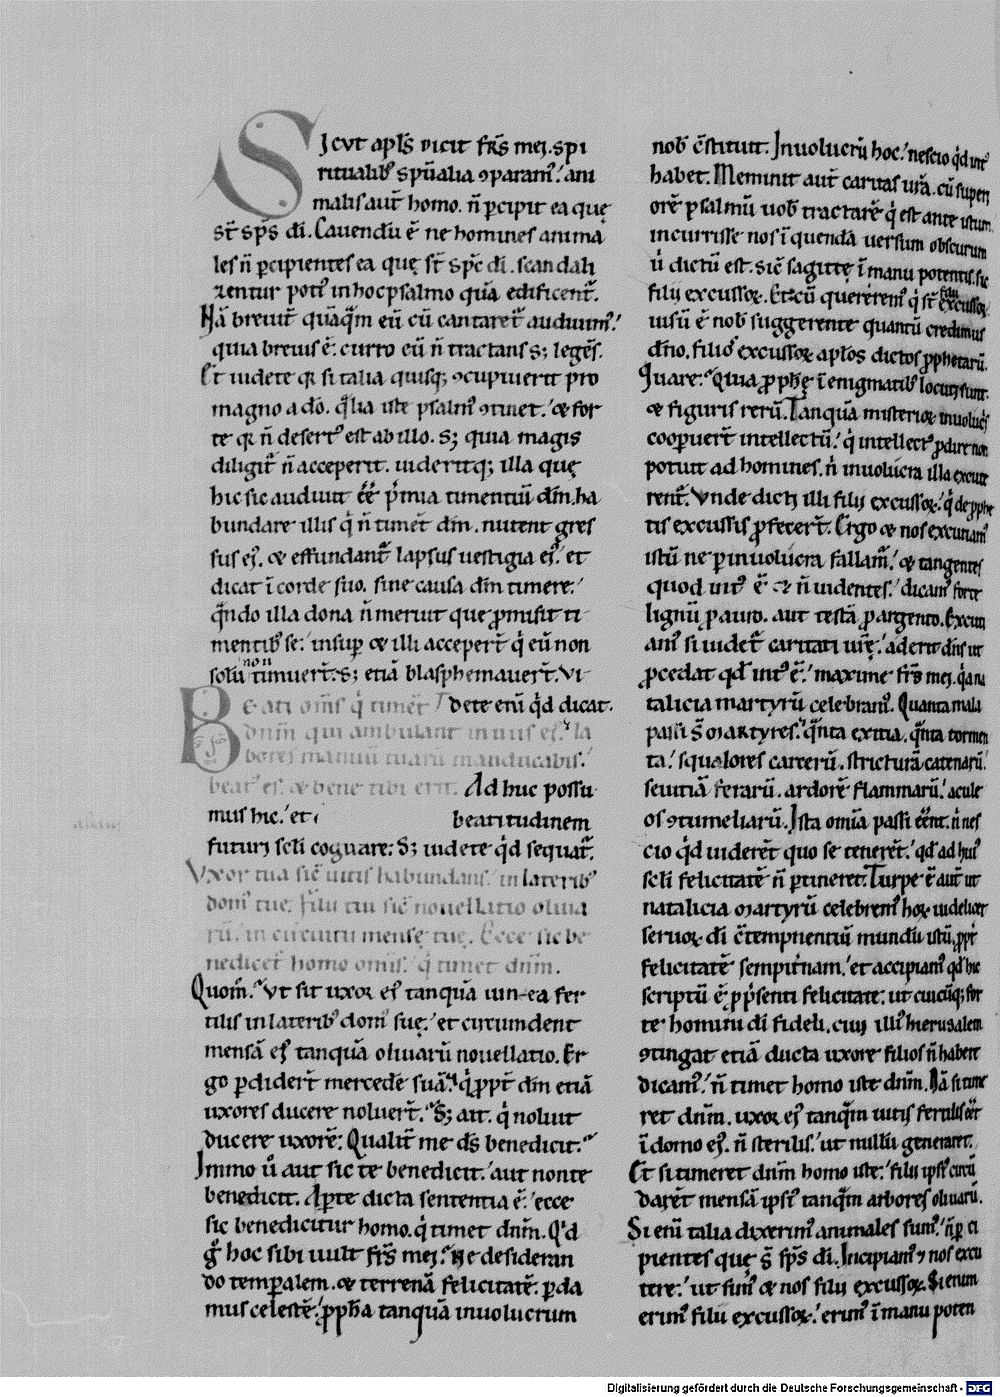 Sicut apl̃s dicit fr̃s mei. spi
ritualib᷒ spũalia ꝯparam᷒. ani
malis aut̃ homo. ñ ꝑcipit ea quę
st̃ sp̃s di. Cauendũ ẽ ne homines anima
les ñ ꝑcipientes ea quę st̃ sp̃c di. scandali
zentur poti᷒ in hoc psalmo quã edificent̃.
Nã breuit̃ quãq̃m eũ cũ cantaret̃ audiuim᷒.
quia breuis ẽ. curro eũ ñ tractans s; legẽs.
Et uidete qr̃ si talia quisq; ꝯcupiuerit pro
magno a dõ. q̃lia iste psalm᷒ ꝯtinet. & for
te qr̃ ñ desert᷒ est ab illo. s; quia magis
diligit̃ ñ acceperit. uideritq; illa quę
hic sic audiuit ẽẽ p̃mia timentiũ dñm. ha
bundare illis q̇ ñ timẽt dñm. nutent gres
sus ei᷒. & effundant̃ lapsus uestigia ei᷒. et
dicat ĩ corde suo. sine causa dñm timere.
q̃ndo illa dona ñ meruit que ꝓmisit ti
mentib᷒ se. insuꝑ & illi acceper̃t q̇ eũ non
solũ non timuer̃t. s; etiã blasphemauer̃t. Vi
Beati om̃s q̇ timẽt dete enĩ q̇d dicat.
dnm̃ qui ambulant in uiis ei᷒. la
bores manuũ tuarũ manducabis.
beat᷒ es. & bene tibi erit. Ad huc possu
mus hic. et beatitudinem
futuri scl̃i cogitare. S; uidete q̇d sequat̃.
Vxor tua sic̃ uitis habundans. in laterib᷒
dom᷒ tue. Filii tui sic̃ nouellatio oliua
rũ. in circuitu mensę tue. Ecce sic be
nedicet̃ homo om̃is. q̇ timet dñm.
Quom̃. Vt sit uxor ei᷒ tanquã uinea fer
tilis in laterib᷒ dom᷒ suę. et circumdent
mensã ei᷒ tanquã oliuarũ nouellatio. Er
go ꝑdider̃t mercedẽ suã. q̇ ꝓpt̃ dñm etiã
uxores ducere noluer̃t. S; ait. q̇ noluit
ducere uxorẽ. Qualit̃ me d̃s benedicit.
Immo ũ aut sic te benedicit. aut non te
benedicit. Aꝑte dicta sententia ẽ. ecce
sic benedicitur homo. q̇ timet dnm̃. Q̇d
g̃ hoc sibi uult fr̃s mei. Ne desideran
do temꝑalem. & terrenã felicitatẽ. ꝑda
mus celestẽ. ꝓph̃a tanquã inuolucrum
nob᷒ c̃stituit. Inuolucrũ hoc. nescio q̇d int᷒
habet. Meminit aut̃ caritas ur̃a. cũ superi
orẽ psalmũ uob᷒ tractarẽ q̇ est ante istum.
incurrisse nos ĩ quendã uersum obscurum
ũ dictũ est. Sic̃ sagittę ĩ manu potentis. sic
filii excussoꝝ. Et cũ quererem᷒ q̇ st̃ filii excussoꝝ.
uisũ ẽ nob᷒ suggerente quantũ credimus
dño. filios excussoꝝ apl̃os dictos ꝓphetarũ.
Quare. Quia ꝓphę ĩ enigmatib᷒ locuti sunt.
& figuris rerũ. Tanquã misterioꝝ inuolucris
cooperuer̃t intellectũ. q̇ intellect᷒ ꝓdire non
potuit ad homines. ñ inuolucra illa excute
rent̃. Vnde dicti illi filii excussoꝝ. q̇ de ꝓphe
tis excussis ꝓfecer̃t. Ergo & nos excutiam᷒
istũ ne ꝑ inuolucra fallam᷒. & tangentes
quod int᷒ ẽ & ñ uidentes. dicam᷒ forte
lignũ ꝓ auro. aut testã ꝓ argento. Excuti
am᷒ si uidet̃ caritati ur̃ę. aderit dñs ut
ꝓcedat qd̃ int᷒ ẽ. maxime fr̃s mei. q̇a na
talicia martyrũ celebram᷒. Quanta mala
passi s̃t martyres. q̃nta exitia. q̃nta tormen
ta. squalores carcerũ. stricturã catenarũ.
seuitiã ferarũ. ardorẽ flammarũ. acule
os ꝯtumeliarũ. Ista omĩa passi ẽẽnt. ñ nes
cio q̇d uiderẽt quo se tenerẽt. qd̃ ad hui᷒
scl̃i felicitatẽ ñ ꝑtineret. Turpe ẽ aut̃ ut
natalicia martyrũ celebrem᷒ hoꝝ uidelicet
seruoꝝ di c̃tempnentiũ mundũ istũ. ꝓpt̃
felicitatẽ sempit̃nam. et accipiam᷒ qd̃ hic
scriptũ ẽ ꝓ p̃senti felicitate. ut cuicũq; for
te homini di fideli. cui᷒ illi᷒ hierusalem
ꝯtingat etiã ducta uxore filios ñ habere
dicam᷒. ñ timet homo iste dnm̃. Nã si time
ret dnm̃. uxor ei᷒ tanq̃m uitis fertilis eẽt
ĩ domo ei᷒. ñ sterilis. ut nullũ generaret.
Et si timeret dnm̃ homo iste. filii ipsi᷒ circũ
darẽt mensã ipsi᷒ tanq̃m arbores oliuarũ.
Si enĩ talia dixerim᷒ animales sum᷒. ñ ꝑci
pientes quę s̃t sp̃s di. Incipiam᷒ & nos excu
tere. ut sim᷒ & nos filii excussoꝝ. Si enim
erim᷒ filii excussoꝝ. erim᷒ ĩ manu poten
Digitalisierung gefördert durch die Deutsche Forschungsgemeinschaft - DFG